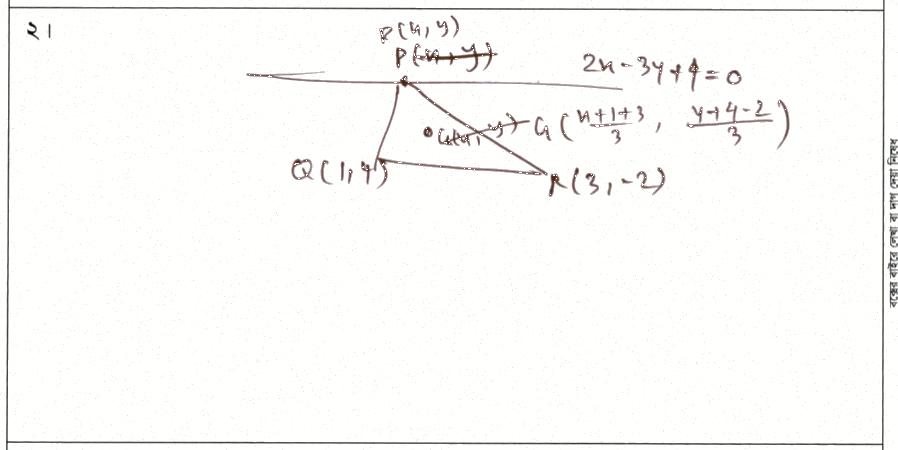 ২।
P(x, y)
P(x, y)
2x - 3y + 4 = 0
G(x, y) G(\frac{x+1+3}{3}, \frac{y+4-2}{3})
Q(1, 4)
R(3, -2)
বক্সের বাইরে লেখা বা দাগ দেয়া নিষেধ